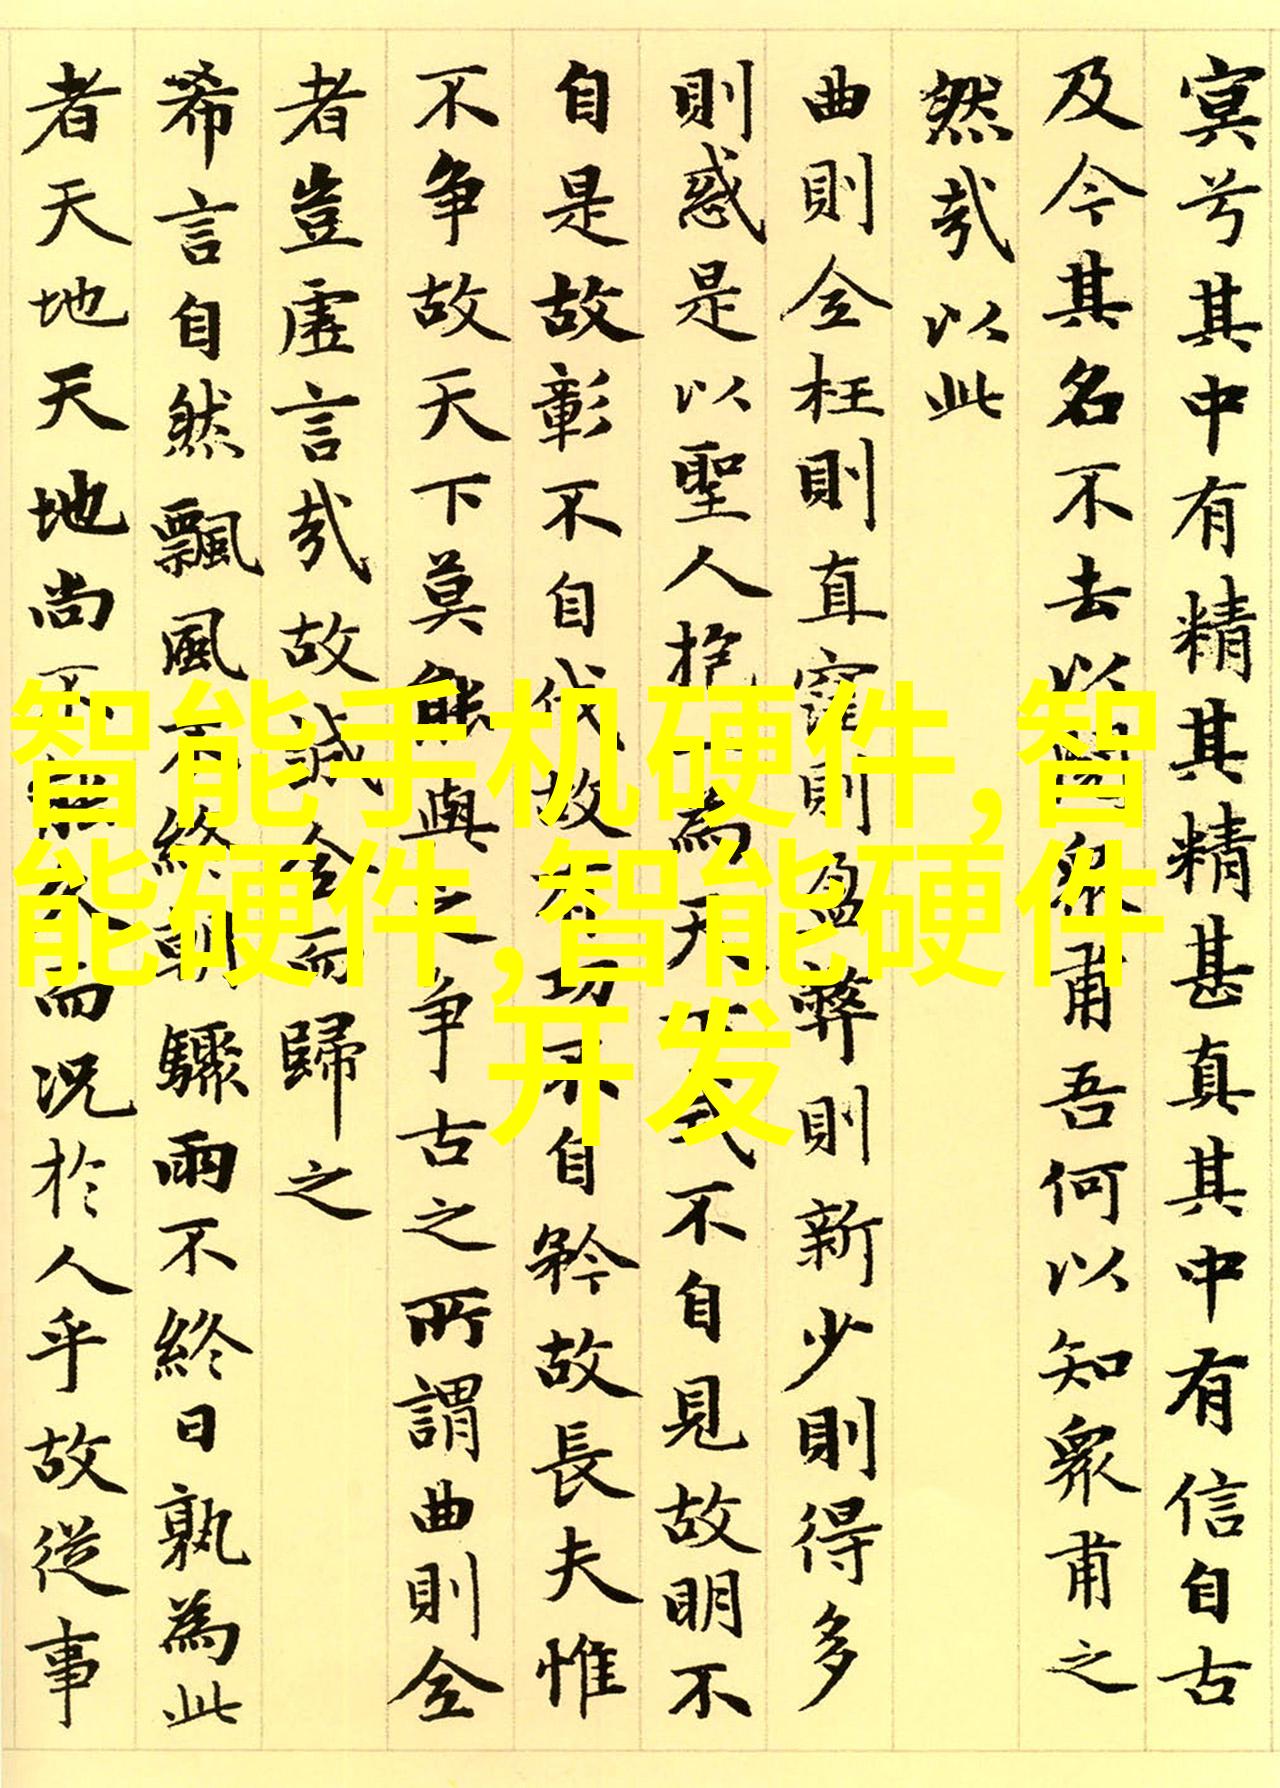 冥兮其中有精其精甚真其中有信自古
及今其名不去以閱衆甫吾何以知衆甫之
然哉以此
曲則全枉則直窪則盈弊則新少則得多
則惑是以聖人抱一為天下式不自見故明不
自是故彰不自伐故有功不自矜故長夫惟
不争故天下莫能與之争古之所謂曲則全
者豈虛言哉故誠全而歸之
希言自然飄風不終朝驟雨不終日孰為此
者天地天地尚不能久而況於人乎故從事
智能手机硬件,智
能硬件,智能硬件
开发